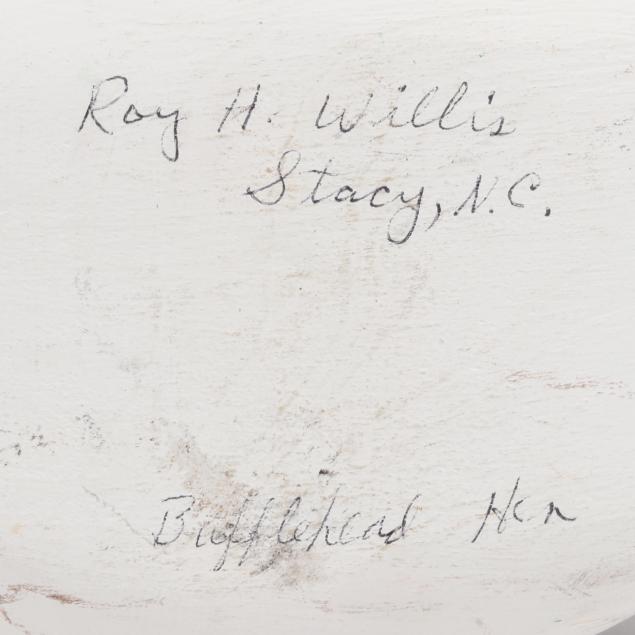 Roy H. Willis
Stacy, N.C.
Bufflehead Hen